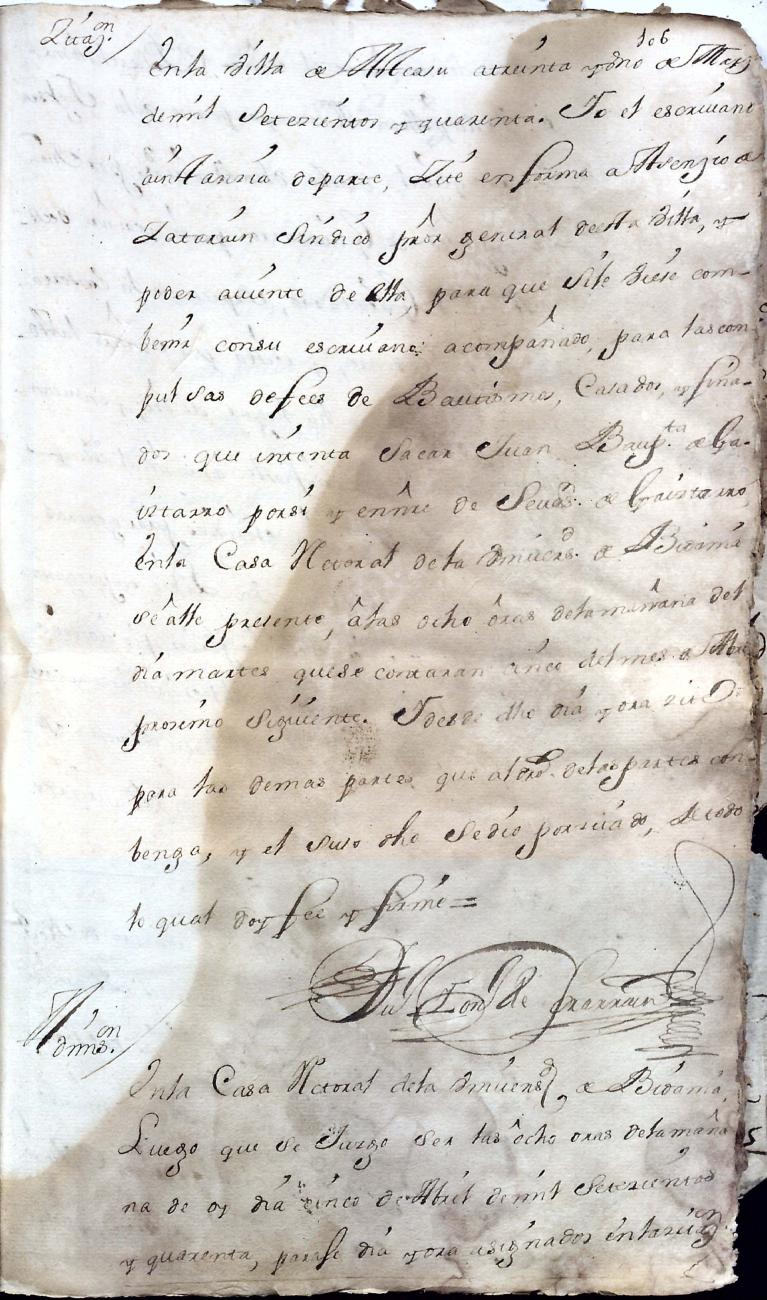 Zitaz.on
106
Enla Villa de Ateasu atreinta y Vno de Marz
demil Setezientos y quarenta. Yo el escrivano
ainstanzia departe, Zite enforma a Asenzio de
Zatarain Sindico pror general desta Villa, y
poder aviente de ella, para que Sile Diese com-
benir consu escrivano acompañado, para las con
pulsas defees de Bautismos, Casados, y fina-
dos que intenta Sacar Juan Baup.ta de Ga-
iztarro porsi y ennre de Sevas.n de Gaiztarro,
enla Casa Retoral dela Vnivers.d de Bidania
Se alle presente, alas ocho oras dela mañana del
dia martes quese contaran cinco del mes de Abril
proximo Siguiente. Y desde dho dia y ora zite
para las demas partes que al dro. delas partes con-
benga, y el suso dho Sedio porzitado, de todo
lo qual doy fee y firme =
de Larrain
Enla Casa Retoral dela Vnivers.d de Bidania,
Luego que se Juzgo ser las ocho oras dela maña
na de oy dia cinco de Abril demil Setezientos
y quarenta, parase dia y ora asignados enlazitaz.on